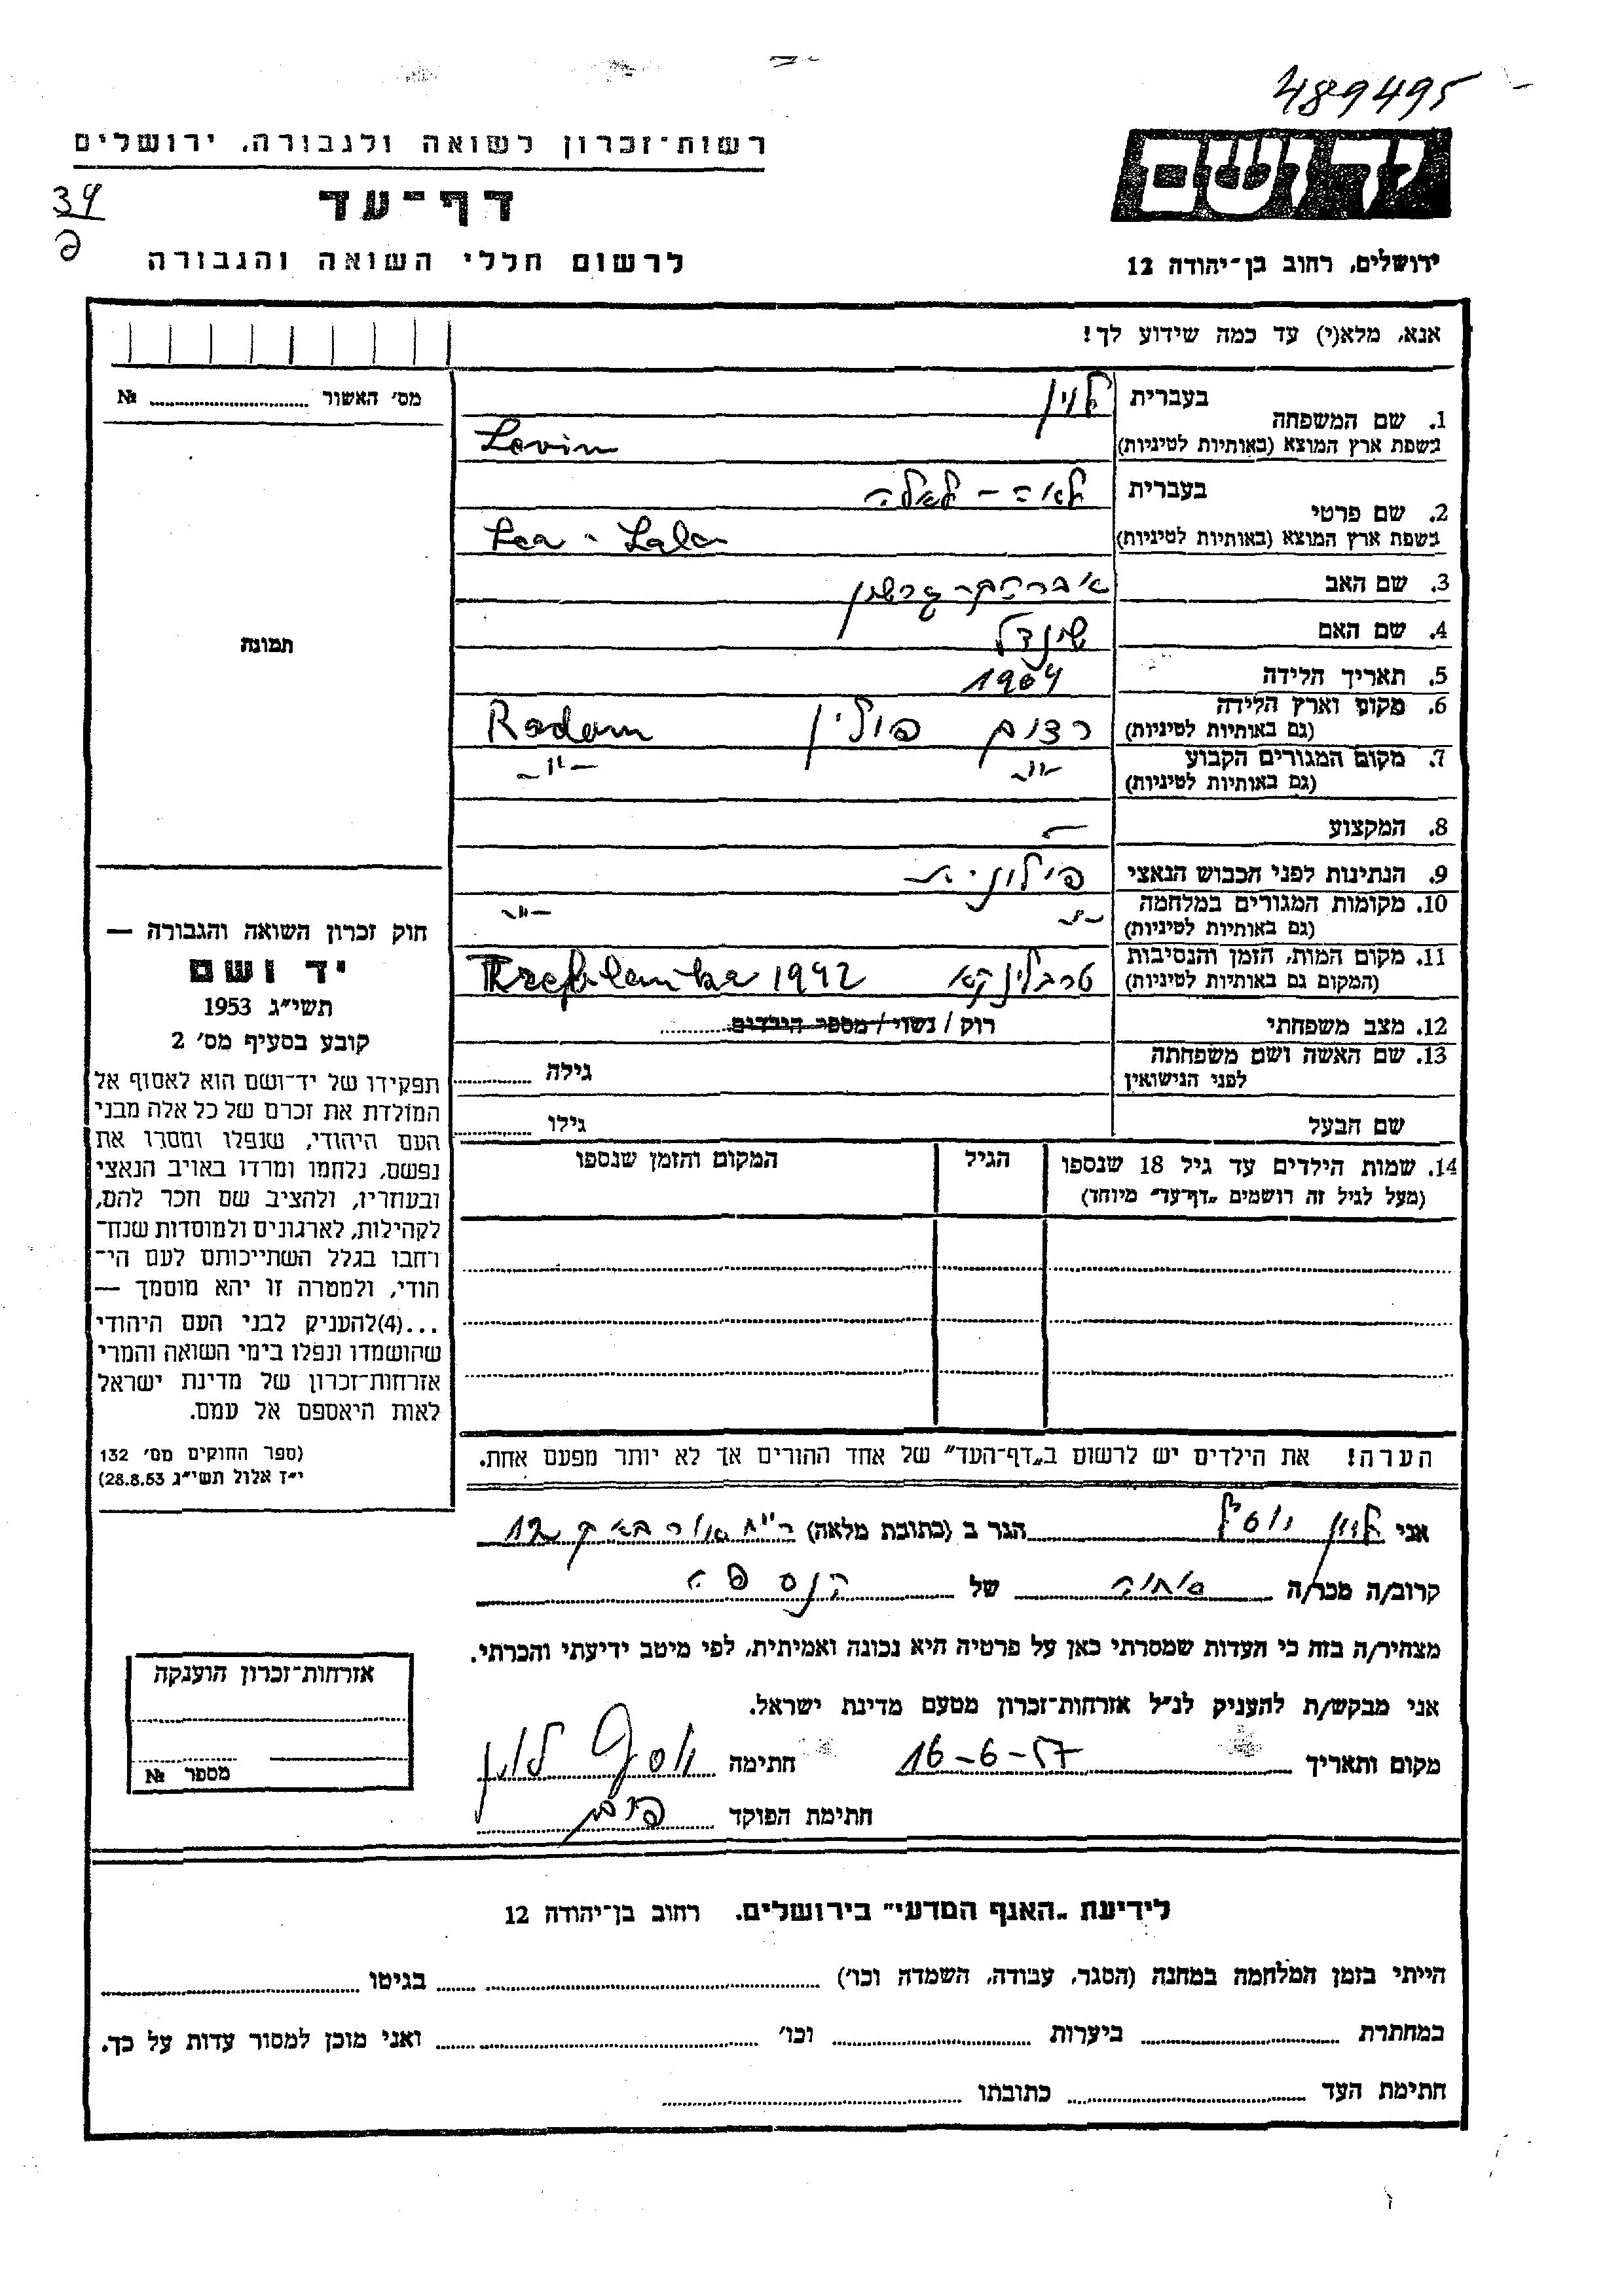 489495
רשות־זכרון לשואה ולגבורה, ירושלים
יד ושם
34
דף־עד
לרשום חללי השואה והגבורה
ירושלים, רחוב בן־יהודה 12
אנא, מלא(י) עד כמה שידוע לך!
מס׳ האשור № 
תמונה
1. שם המשפחה
בעברית לוין
בשפת ארץ המוצא (באותיות לטיניות) Levin
2. שם פרטי
בעברית לאה - לאלה
בשפת ארץ המוצא (באותיות לטיניות) Lea - Lala
3. שם האב גרשון
4. שם האם שינדל
5. תאריך הלידה 1904
6. מקום וארץ הלידה
(גם באותיות לטיניות) רדום פולין Radom
7. מקום המגורים הקבוע
(גם באותיות לטיניות) -"- -"-
8. המקצוע -
9. הנתינות לפני הכבוש הנאצי פולונית
10. מקומות המגורים במלחמה
(גם באותיות לטיניות) -"- -"-
11. מקום המות, הזמן והנסיבות
(המקום גם באותיות לטיניות) טרבלינקא 1942
12. מצב משפחתי רוק / נשוי / מספר הילדים
13. שם האשה ושם משפחתה
לפני הנישואין גילה
שם הבעל גילו
14. שמות הילדים עד גיל 18 שנספו הגיל המקום והזמן שנספו
(מעל לגיל זה רושמים „דף־עד״ מיוחד)
חוק זכרון השואה והגבורה —
יד ושם
תשי״ג 1953
קובע בסעיף מס׳ 2
תפקידו של יד־ושם הוא לאסוף אל
המולדת את זכרם של כל אלה מבני
העם היהודי, שנפלו ומסרו את
נפשם, נלחמו ומרדו באויב הנאצי
ובעוזריו, ולהציב שם וזכר להם,
לקהילות, לארגונים ולמוסדות שנח־
רחבו בגלל השתייכותם לעם הי־
הודי, ולמטרה זו יהא מוסמך —
...(4)להעניק לבני העם היהודי
שהושמדו ונפלו בימי השואה והמרי
אזרחות־זכרון של מדינת ישראל
לאות היאספם אל עמם.
(ספר החוקים מס׳ 132
י״ז אלול תשי״ג 28.8.53)
הערה! את הילדים יש לרשום ב„דף־העד״ של אחד ההורים אך לא יותר מפעם אחת.
אני לוין יוסף הגר ב (כתובת מלאה) 12
קרוב/ה מכר/ה של הנספה
מצהיר/ה בזה כי העדות שמסרתי כאן על פרטיה היא נכונה ואמיתית, לפי מיטב ידיעתי והכרתי.
אני מבקש/ת להעניק לנ״ל אזרחות־זכרון מטעם מדינת ישראל.
מקום ותאריך 16-6-57 חתימה יוסף לוין
חתימת הפוקד
אזרחות־זכרון הוענקה
מספר №
לידיעת „האגף המדעי״ בירושלים. רחוב בן־יהודה 12
הייתי בזמן המלחמה במחנה (הסגר, עבודה, השמדה וכו׳) בגיטו
במחתרת ביערות וכו׳ ואני מוכן למסור עדות על כך.
חתימת העד כתובתו